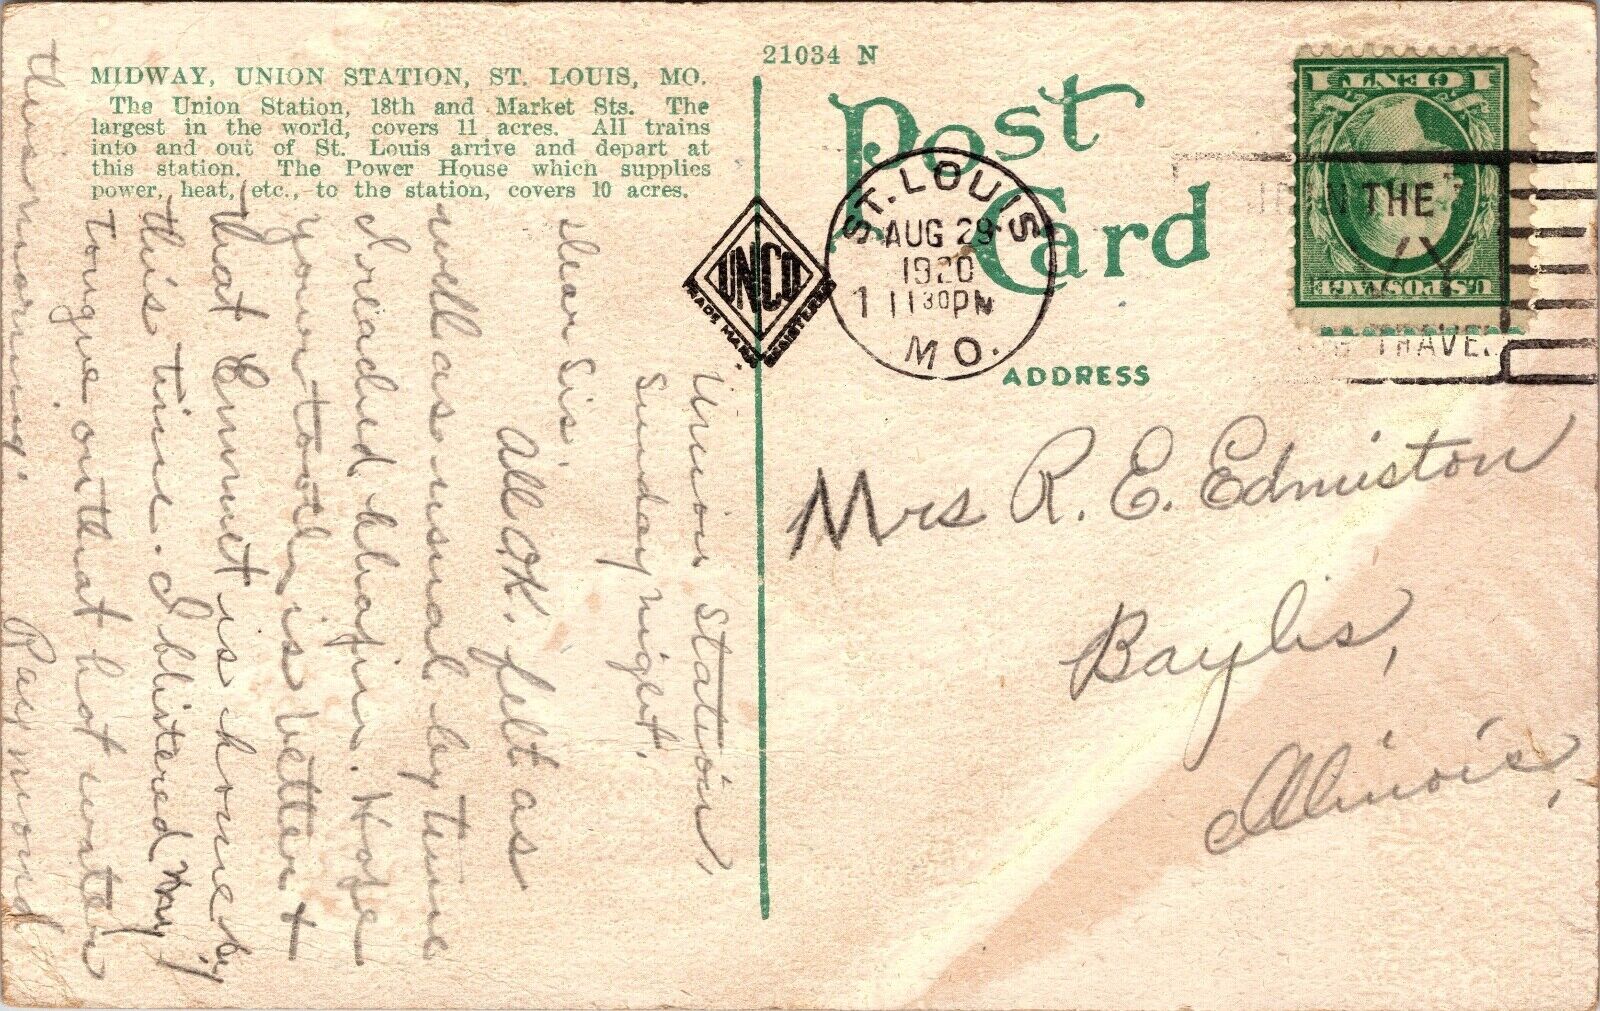 MIDWAY, UNION STATION, ST. LOUIS, MO.
The Union Station, 18th and Market Sts. The
largest in the world, covers 11 acres. All trains
into and out of St. Louis arrive and depart at
this station. The Power House which supplies
power, heat, etc., to the station, covers 10 acres.
21034 N
Post
Card
ST. LOUIS
AUG 29
1920
1 1130PM
MO.
JOIN THE
TRAVEL
1 CENT 1
U.S. POSTAGE
UNCO
TRADE MARK REGISTERED
ADDRESS
Mrs R. E. Edmiston
Baylis,
Illinois,
Union Station,
Sunday night.
Dear Sis,
All OK. felt as
well as usual by time
I reached
your tooth is better &
that Emmet is home by
this time. I blistered my
tongue on that hot water
this morning.
Raymond